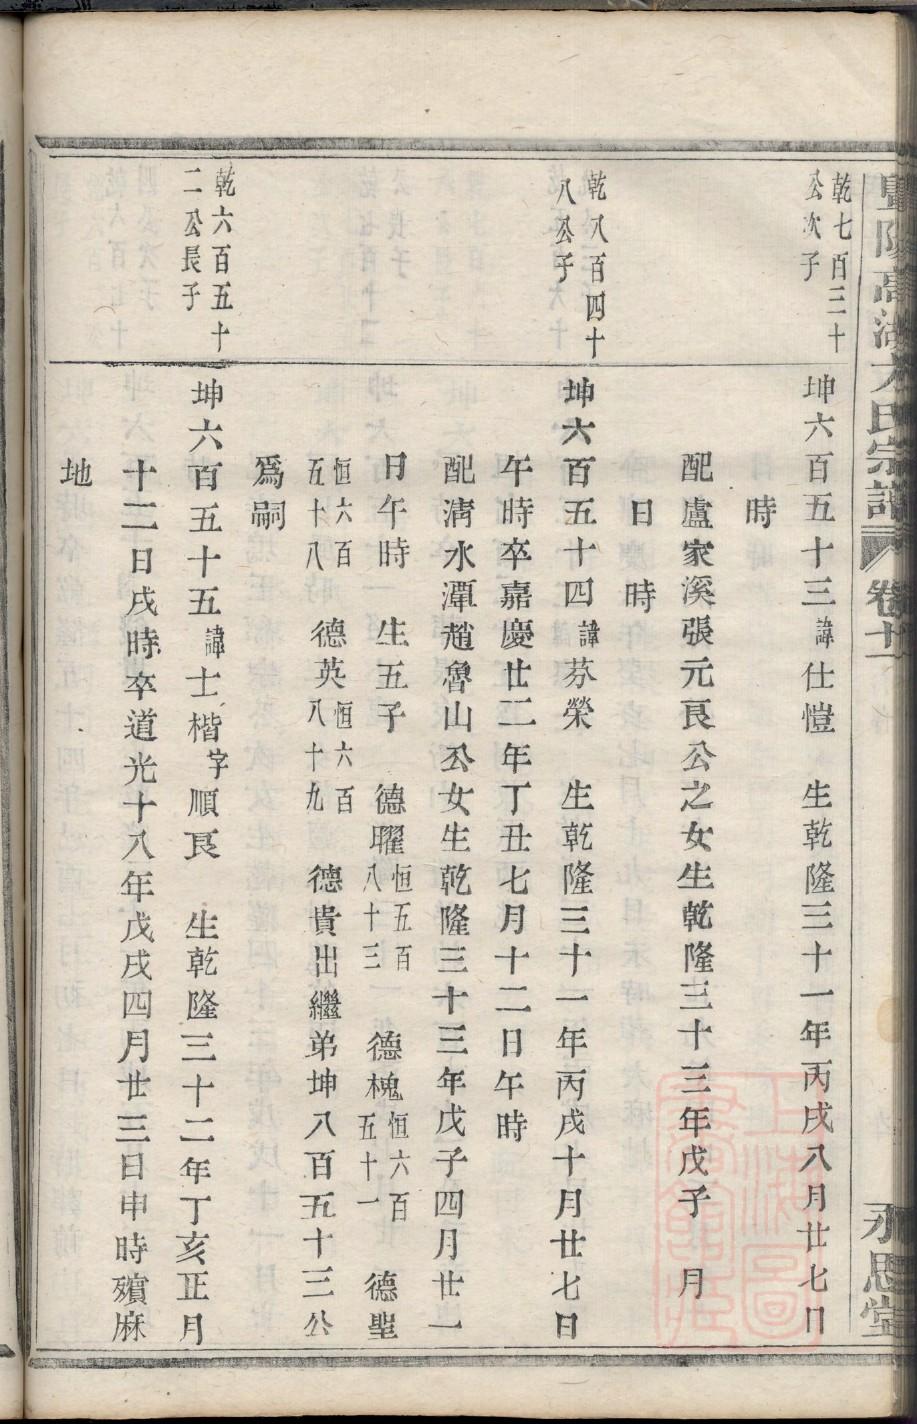 暨陽高湖方氏宗譜 卷十一 永思堂
乾七百三十
公次子
坤六百五十三諱仕愷 生乾隆三十一年丙戌八月廿七日
時
配盧家溪張元良公之女生乾隆三十三年戊子 月
日時
乾八百四十
八公子
坤六百五十四諱芬榮 生乾隆三十一年丙戌十月廿七日
午時卒嘉慶廿二年丁丑七月十二日午時
配濟水潭趙魯山公女生乾隆三十三年戊子四月廿一
日午時 生五子 德曜恒五百八十三 德槐恒六百五十一 德聖
恒六百五十八 德英恒六百八十九 德貴出繼弟坤八百五十三公
爲嗣
乾六百五十
二公長子
坤六百五十五諱士楷字順良 生乾隆三十二年丁亥正月
十二日戌時卒道光十八年戊戌四月廿三日申時殯麻
地